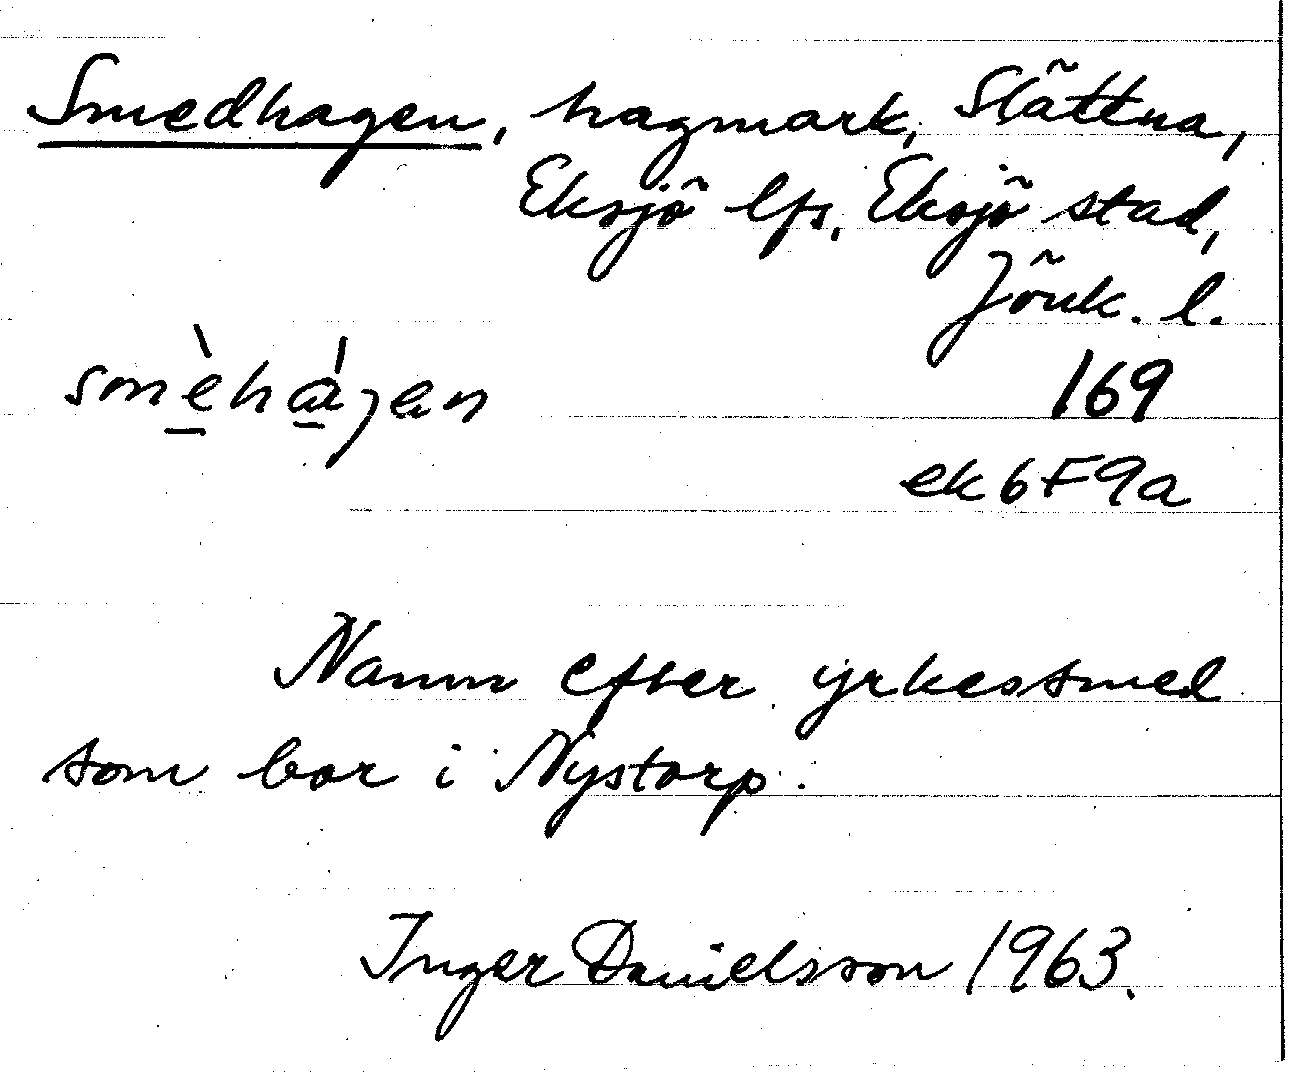 Smedhagen, hagmark, Slättna,
Eksjö lfs, Eksjö stad,
Jönk. l.
smèhágen
169
ek 6F9a
Namn efter yrkessmed
som bor i Nystorp.
Inger Danielsson 1963.